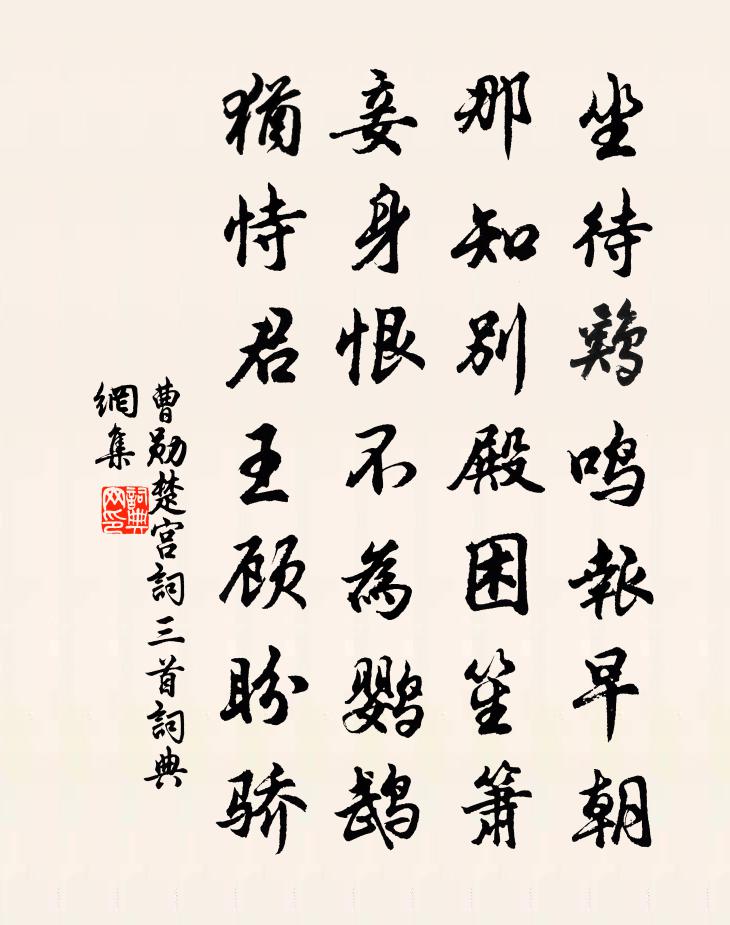 坐待鷄鳴報早朝
那知別殿困笙簫
妾身恨不為鹦鹉
猶恃君王顾盼骄
曹勛楚宫詞三首詞典
網集
詞典
网印